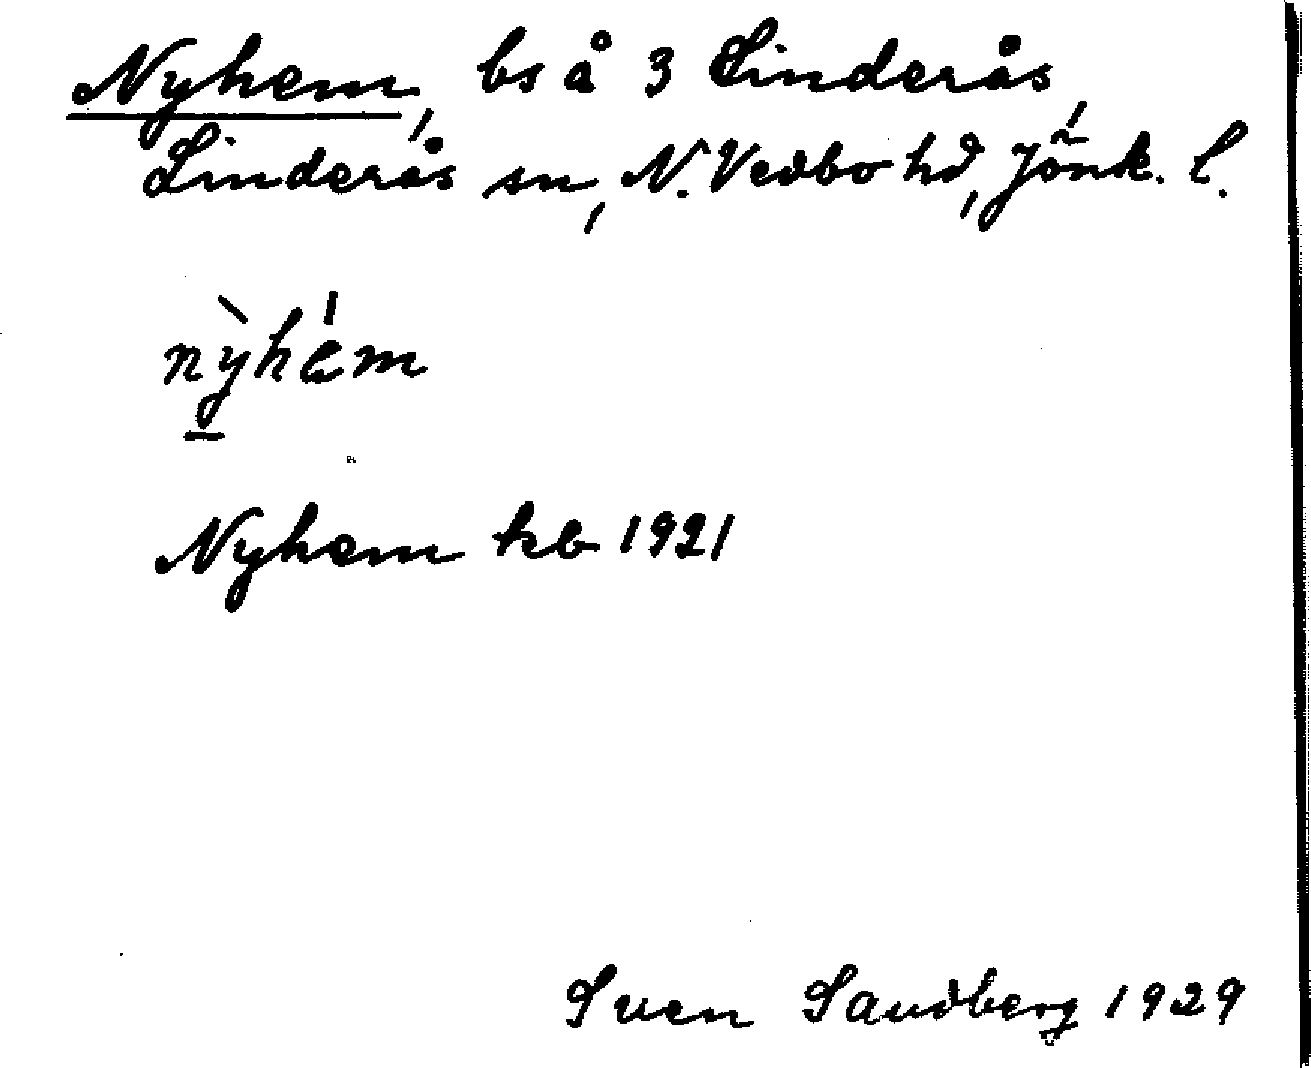 Nyhem, bs å 3 Linderås,
Linderås sn, N. Vedbo hd, Jönk. l.
nỳhém
Nyhem kb 1921
Sven Sandberg 1929